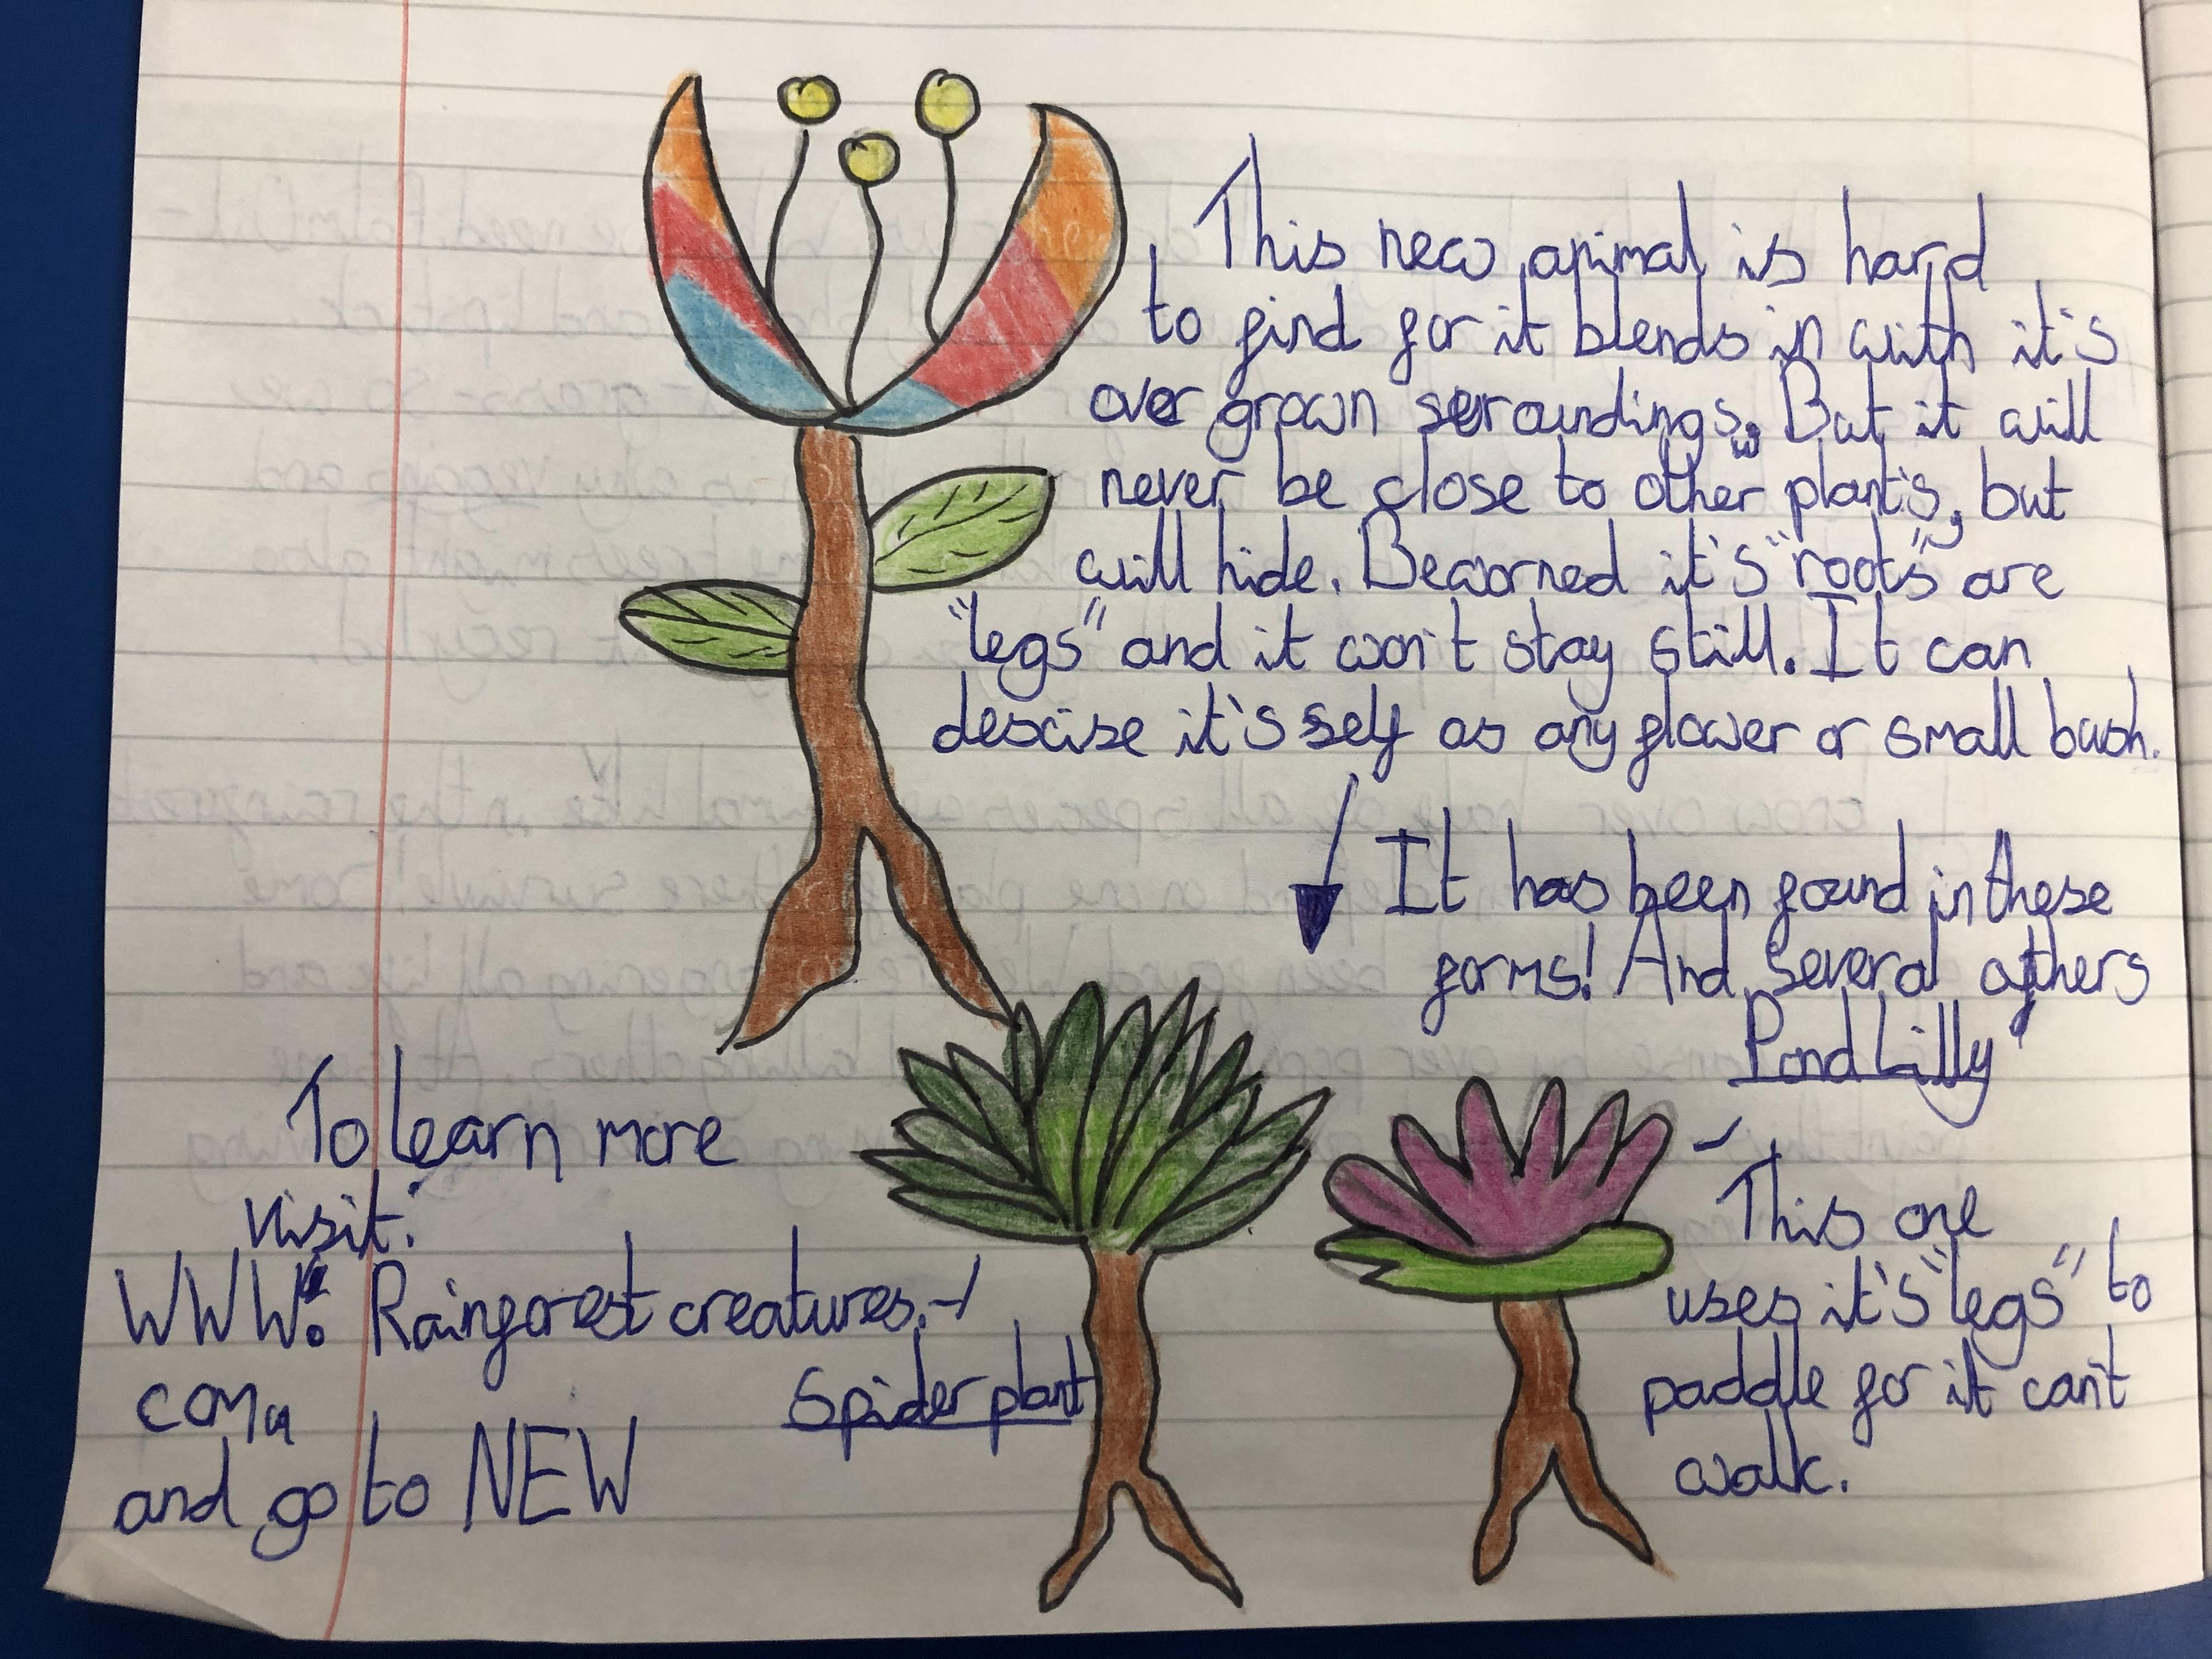 This new animal is hard
to find for it blends in with it's
over grown serroundings. But it will
never be close to other plant's, but
will hide. Beworned it's "roots" are
"legs" and it won't stay still. It can
descise it's self as any flower or small bush.
It has been found in these
forms! And several others
Pond Lilly
This one
uses it's "legs" to
paddle for it can't
walk.
Spider plant
To learn more
visit:
WWW. Rainforest creatures.-/
com
and go to NEW